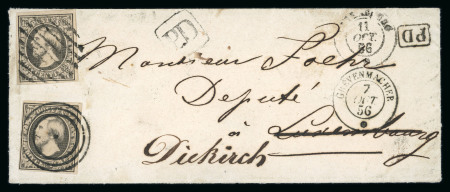 PD
11
OCT.
56
PD
Monsieur Foehr
Deputé
GREVENMACHER
7
OCT
56
Luxembourg
à
Diekirch